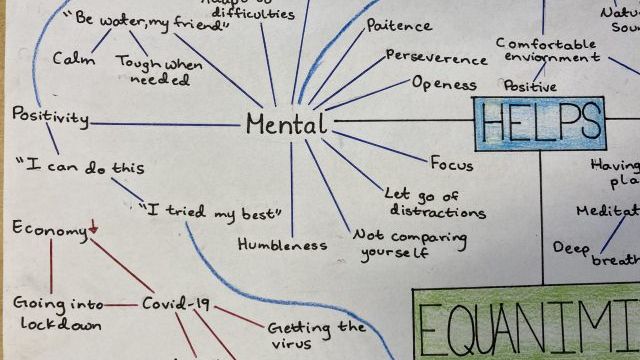 "Be water, my friend"
difficulties
Calm
Tough when
needed
Paitence
Perseverence
Openess
Comfortable
enviornment
Positive
Positivity
Mental
HELPS
"I can do this
"I tried my best"
Focus
Let go of
distractions
Not comparing
yourself
Humbleness
Having
Meditat
Deep
breath
Economy
Going into
lockdown
Covid-19
Getting the
virus
EQUANIMI